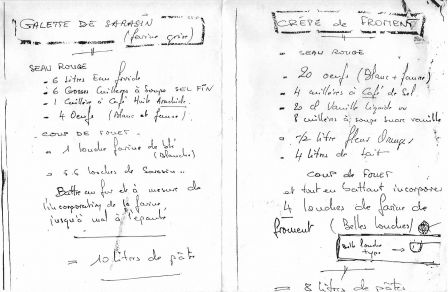 GALETTE DE SARASIN
(farine grise)
SEAU ROUGE
- 6 Litres Eau froide
- 6 Grosses Cuillères à Soupe SEL FIN
- 1 Cuillère à Café Huile Arachide
- 4 Oeufs (Blanc et jaune)
COUP DE FOUET
- 1 louche farine de blé
(Blanche)
- 5.6 louches de Sarasin...
Battre au fur et à mesure de
l'incorporation de la farine
jusqu'à mal à l'épaule
= 10 litres de pâte
CRÊPE de FROMENT
- SEAU ROUGE
- 20 oeufs (Blanc + jaune)
- 4 cuillères à Café de Sel
- 20 cl Vanille liquide ou
8 cuillères à soupe sucre vanille
- 1/2 litre fleur Oranger
- 4 litres de lait
COUP de FOUET
et tout en battant incorporer
4 louches de farine de
froment (Belles louches)
Belle louche
type →
= 8 litres de pâte